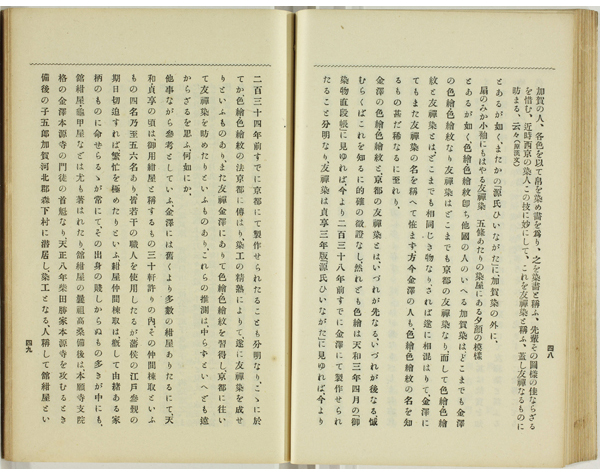 加賀の人、各色を以て帛を染め畫を爲り、之を染畫と稱ふ、先輩その圖樣の佳ならざる
を惜む、近時西京の染人、この技に妙にして、これを友禪染と稱ふ、蓋し友禪なるものに
昉まる、云々(原漢文)
とあるが如く、またかの「源氏ひいながた」に、加賀染の外に、
扇のみか小袖にもはやる友禪染 五條あたりの染屋にある夕顏の模樣
とあるが如く、色繪色繪紋即ち他國の人のいへる加賀染は、どこまでも金澤
の色繪色繪紋なり、友禪染はどこまでも京都の友禪染なり、而して色繪色繪
紋と友禪染とは、どこまでも相同じき物なりされば遂に相混はりて、金澤に
てもまた友禪染の名を稱へて怪まず、方今金澤の人も、色繪色繪紋の名を知
るもの甚だ稀なるに至れり、
金澤の色繪色繪紋と、京都の友禪染とは、いづれが先なるいづれが後なる、憾
むらくばこれを知るに的確の徵證なし、然れども色繪は天和三年四月の「御
染物直段帳」に見ゆれば、今より二百三十八年前すでに金澤にて製作せられ
たること分明なり、友禪染は貞享三年版源氏ひいながた」に見ゆれば、今より
四八
二百三十四年前すでに京都にて製作せられたることも分明なり、こゝに於
てか、色繪色繪紋の法京都に傳はり、染工の精熟によりて遂に友禪染を成せ
りといふものあり、また友禪金澤にありて色繪色繪紋を習得し、京都に往い
て友禪染を昉めたりといふものあり、これらの推測は、中らずといへども遠
からざるを思ふ、何如にか、
他事ながら參考としていふ、金澤には舊くより多數の紺屋ありたるにて、天
和貞享の頃は御用紺屋と稱するもの三十軒許りの内、その仲間棟取といふ
もの四名乃至五六名あり、皆若干の職人を使用したるが、藩侯の江戸參覲の
期日切迫すれば繁忙を極めたりといふ、紺屋仲間棟取は、概して由緖ある家
柄のものに命せらるゝが常にて、その出身の賤しからぬもの多きが中にも、
舘紺屋・龜甲屋などは、尤も著はれたり、舘紺屋の曩祖高桑備後は、本願寺支院
格の金澤本源寺の門徒の首魁なり、天正八年柴田勝家本源寺を攻むるとき
備後の子五郎加賀河北郡森下村に潜居し、染工となる、人稱して舘紺屋とい
四九